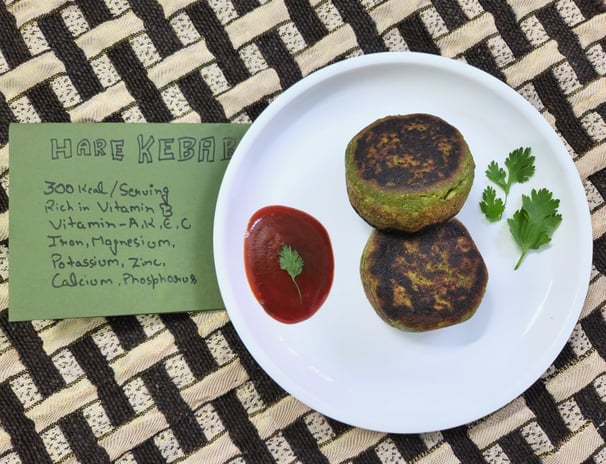 HARE KEBAB
300 Kcal/Serving
Rich in Vitamin B
Vitamin-A,K,E,C
Iron, Magnesium,
Potassium, Zinc,
Calcium, Phosphorus